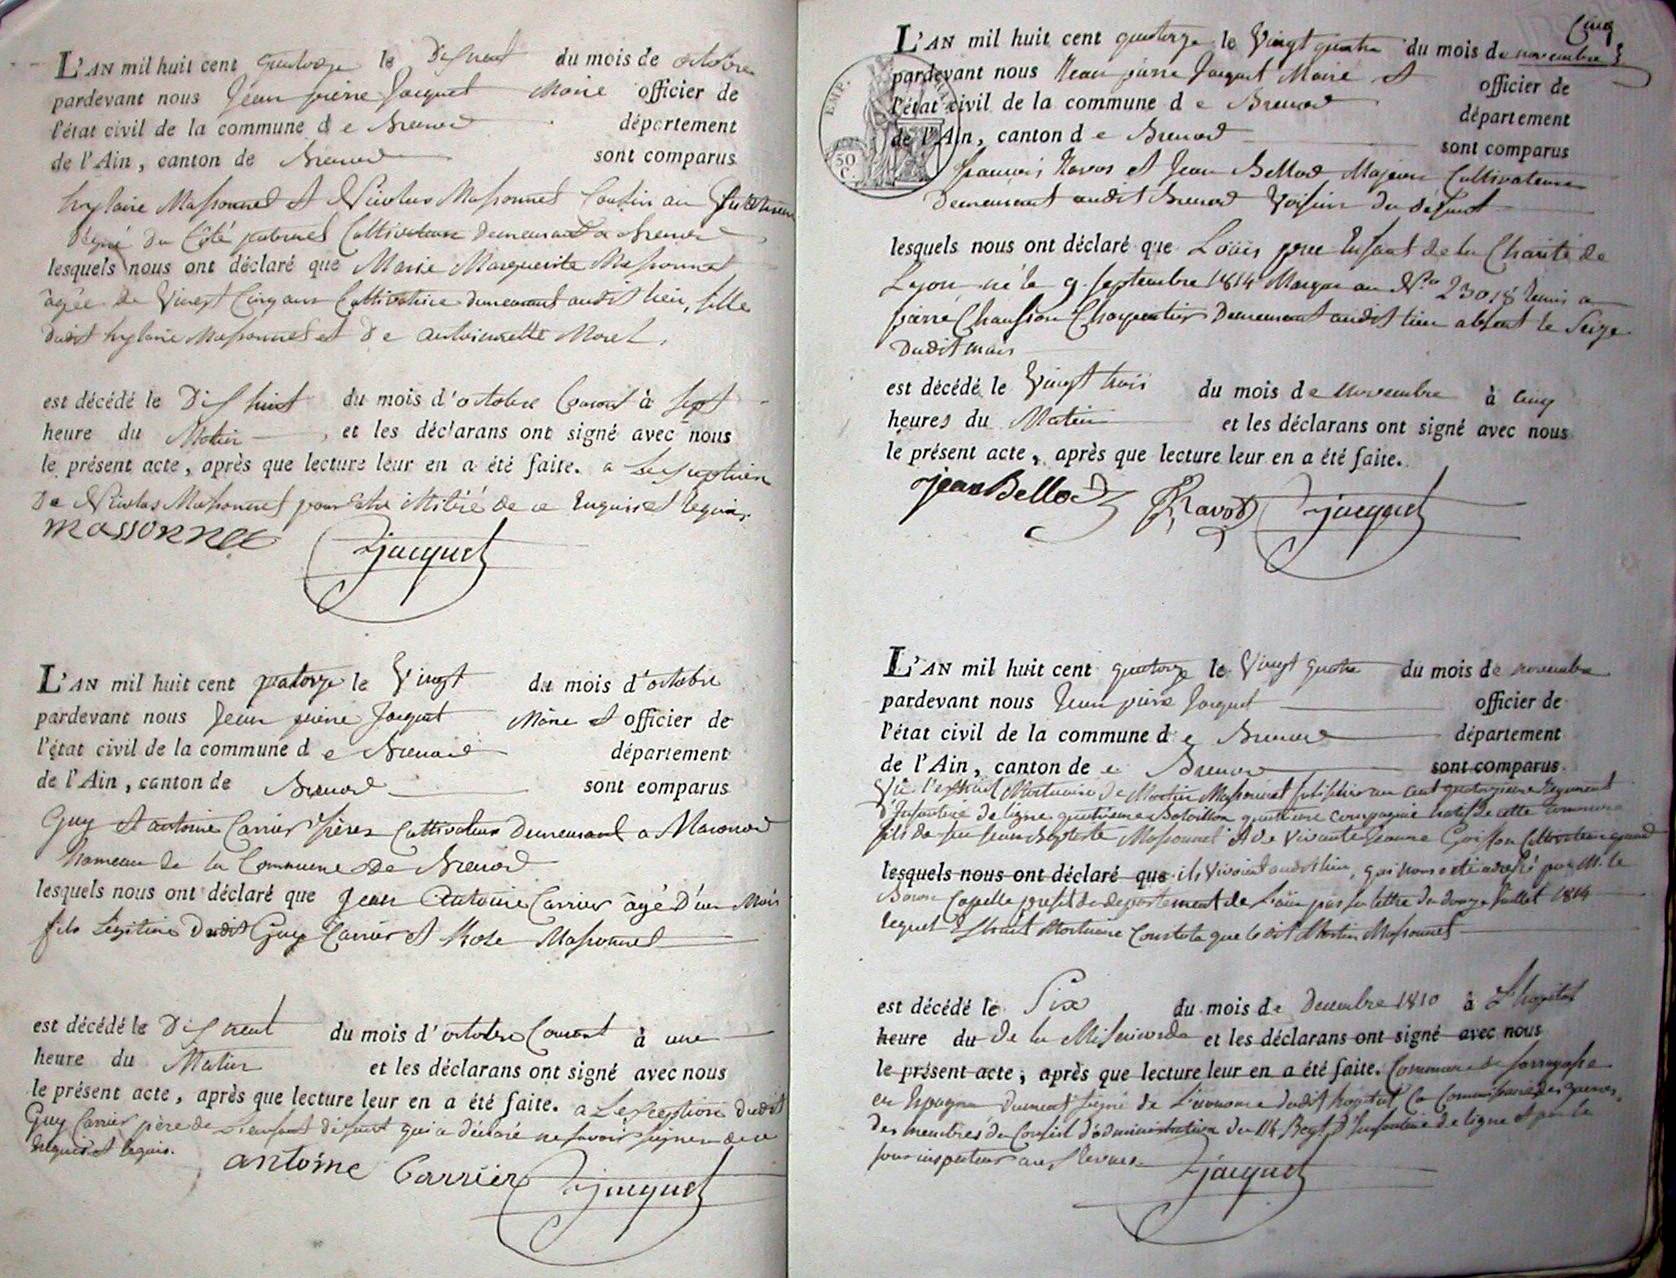 L'AN mil huit cent quatorze le Dix neuf du mois de octobre
pardevant nous Jean pierre Jacquet Maire officier de
l'état civil de la commune d e Brenod département
de l'Ain, canton de Brenod sont comparus
hylaire Massonnet et Nicolas Massonnet Cousin au
Dégré du Côté paternel Cultivateurs demeurant a Brenod
lesquels nous ont déclaré que Marie Marguerite Massonnet
âgée de Vingt Cinq ans Cultivatrice demeurant audit lieu, fille
dudit hylaire Massonnet et de antoinette Morel,
est décédé le Dix huit du mois d'octobre Courant à Sept
heure du Matin, et les déclarans ont signé avec nous
le présent acte, après que lecture leur en a été faite. a
De Nicolas Massonnet pour être illitiré de ce Enquis et Requis.
massonnet Jacquet
L'AN mil huit cent quatorze le Vingt du mois d'octobre
pardevant nous Jean pierre Jacquet Maire et officier de
l'état civil de la commune d e Brenod département
de l'Ain, canton de Brenod sont comparus
Guy et antoine Carrier frères Cultivateurs Demeurant a Macconod
hameau de la Commune de Brenod
lesquels nous ont déclaré que Jean Antoine Carrier âgé d'un Mois
fils Légitime dudit Guy Carrier et Rose Massonnet
est décédé le Dix neuf du mois d'octobre Courant à une
heure du Matin et les déclarans ont signé avec nous
le présent acte, après que lecture leur en a été faite. a L'exception dudit
Guy Carrier père de L'enfant défunt qui a déclaré ne savoir signer de ce
enquis et Requis.
antoine Carrier Jacquet
Cinq
L'AN mil huit cent quatorze le Vingt quatre du mois de novembre
pardevant nous Jean pierre Jacquet Maire et officier de
l'état civil de la commune d e Brenod département
de l'Ain, canton d e Brenod sont comparus
EMP.
50
C.
francois Ravot et Jean Bellod Majeurs Cultivateurs
Demeurant audit Brenod Voisins du défunt
lesquels nous ont déclaré que Loüis pree Enfant de la Charité de
Lyon né le 9 Septembre 1814 Marque au N.o 23018 Remis a
pierre Chanson Charpentier Demeurant audit lieu absent le Seize
Dudit mois
est décédé le Vingt trois du mois de novembre à cinq
heures du Matin et les déclarans ont signé avec nous
le présent acte, après que lecture leur en a été faite.
jean Bellod Ravot Jacquet
L'AN mil huit cent quatorze le Vingt quatre du mois de novembre
pardevant nous Jean pierre Jacquet officier de
l'état civil de la commune d e Brenod département
de l'Ain, canton de e Brenod sont comparus
Vu l'extrait Mortuaire de Martin Massonnet fusilier au cent quatorzieme Regiment
d'Infanterie de ligne quatrieme Bataillon quatrieme compagnie natif de cette commune
fils de feu Jean Baptiste Massonnet et de Vivante Jeanne Cultivateurs quand
lesquels nous ont déclaré que ils vivoient audit lieu, qui nous a été adressé par M. le
Baron Capelle prefet du departement de l'ain par sa lettre du douze Juillet 1814
lequel Extrait Mortuaire Constate que ledit Martin Massonnet
est décédé le Six du mois de decembre 1810 à L'hopital
heure du de la Misericorde et les déclarans ont signé avec nous
le présent acte, après que lecture leur en a été faite. Commune de Sarragosse
en Espagne dument Signé de L'econome dudit hopital Ce Commissaire des guerres,
des membres du Conseil d'administration du 114 Regt. d'Infanterie de ligne et par le
sous inspecteur aux Revues. Jacquet